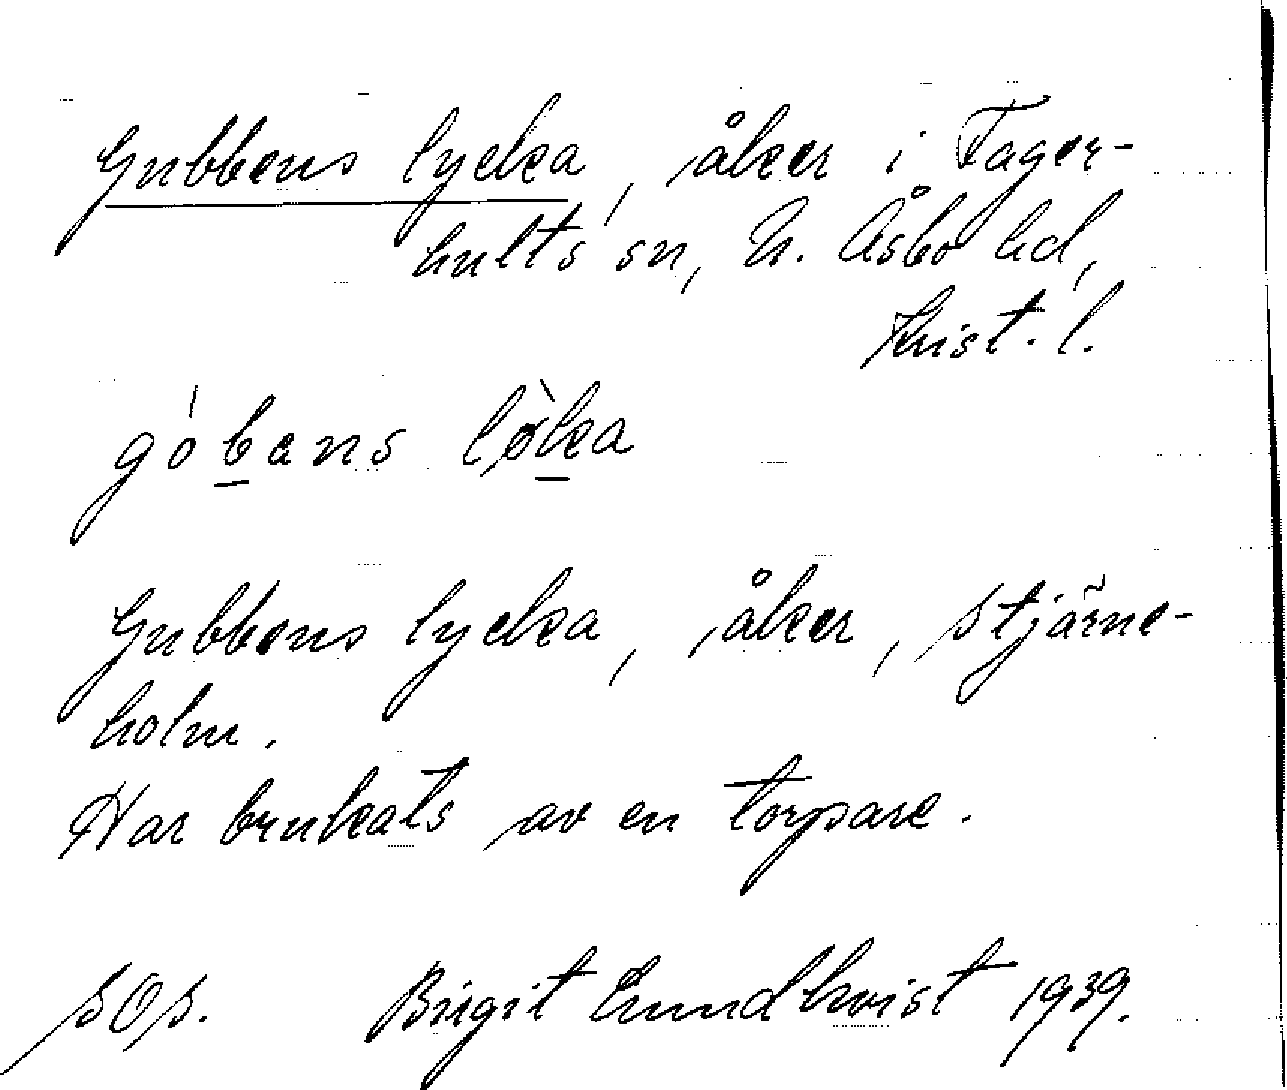 Gubbens lycka, åker i Fager-
hults sn, N. Åsbo hd,
Krist. l.
góbans lø̀ka
Gubbens lycka, åker, Stjärne-
holm.
Har brukats av en torpare.
SOS. Birgit Lundkvist 1939.